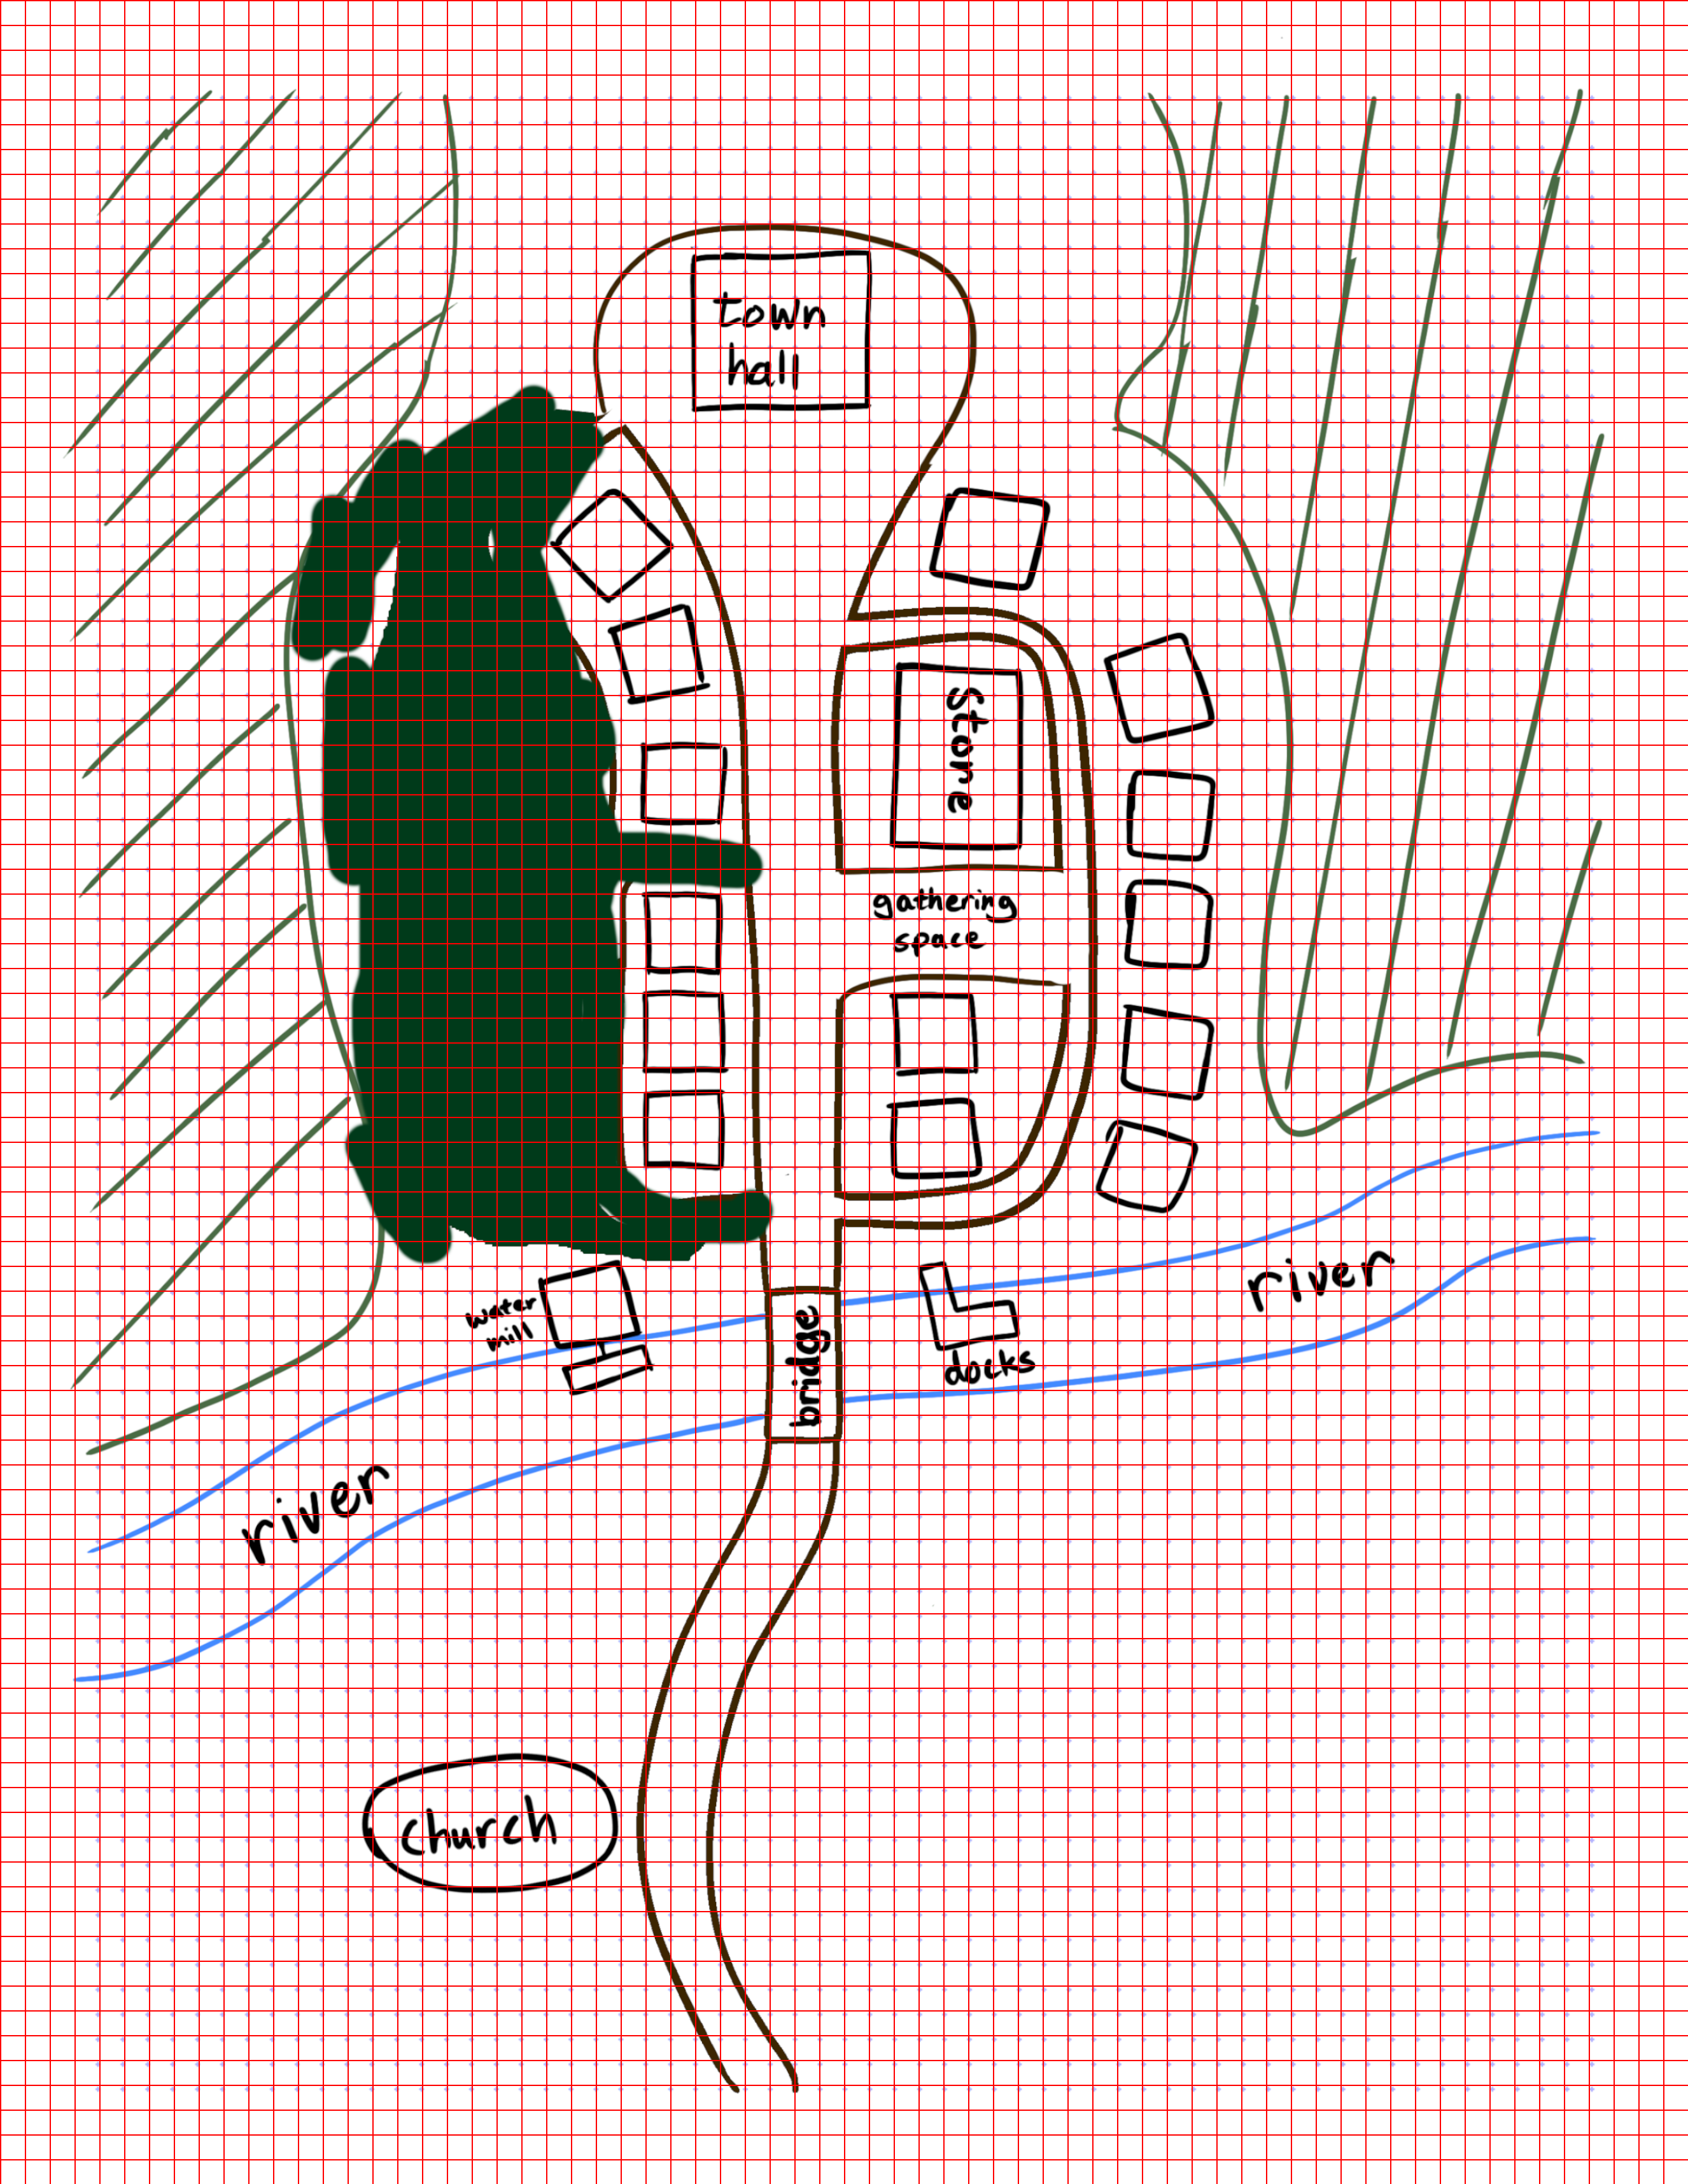 town
hall
Store
gathering
space
water
mill
bridge
docks
river
river
church